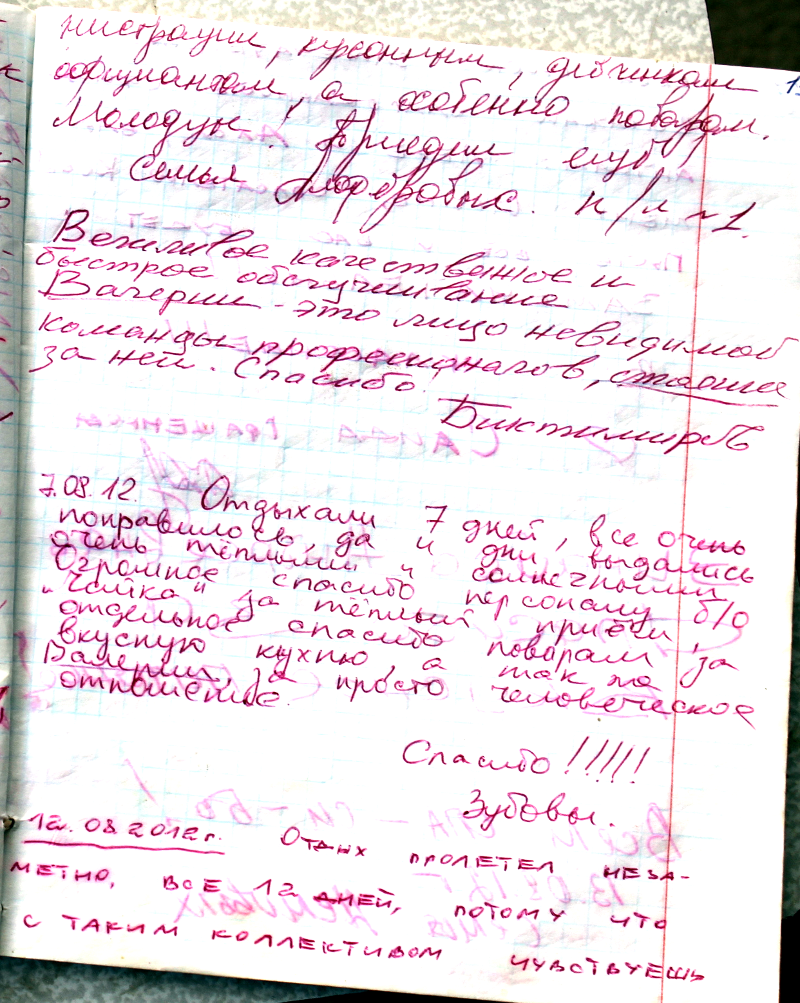 нистрации, кухонным, девчонкам
официантам, а особенно поварам.
Молодцы! Приедем ещё!
Семья н/л №1.
Вежливое качественное и
быстрое обслуживание
Валерии - это лицо невидимой
команды професионалов, стоящие
за ней. Спасибо.
Биктимировы
7.08.12. Отдыхали 7 дней, все очень
понравилось, да и дни выдались
очень тёплыми и солнечными
Огромное спасибо персоналу б/о
"Чайка" за тёплый приём,
отдельное спасибо поварам за
вкусную кухню, а так же
Валерии, за просто человеческое
отношение.
Спасибо!!!!!
Зубовы.
12.08.2012г. Отдых пролетел неза-
метно, все 12 дней, потому что
с таким коллективом чувствуешь